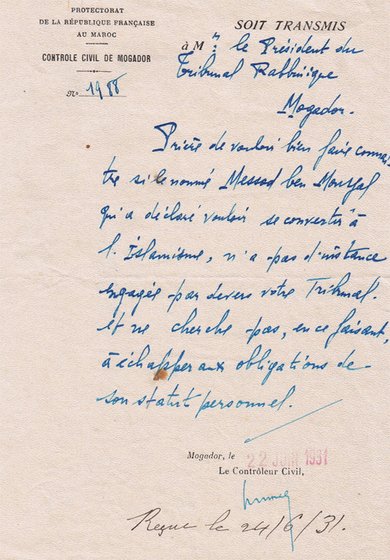 PROTECTORAT
DE LA RÉPUBLIQUE FRANÇAISE
AU MAROC
CONTROLE CIVIL DE MOGADOR
N° 1988
SOIT TRANSMIS
à M r le Président du
Tribunal Rabbinique
Mogador.
Prière de vouloir bien faire connaî
tre si le nommé Messod ben
qui a déclaré vouloir se convertir à
l'Islamisme, n'a pas d'instance
engagée par devers votre Tribunal.
et ne cherche pas, en ce faisant,
à échapper aux obligations de
son statut personnel.
Mogador, le 22 JUIN 1931
Le Contrôleur Civil,
Reçue le 24/6/31.